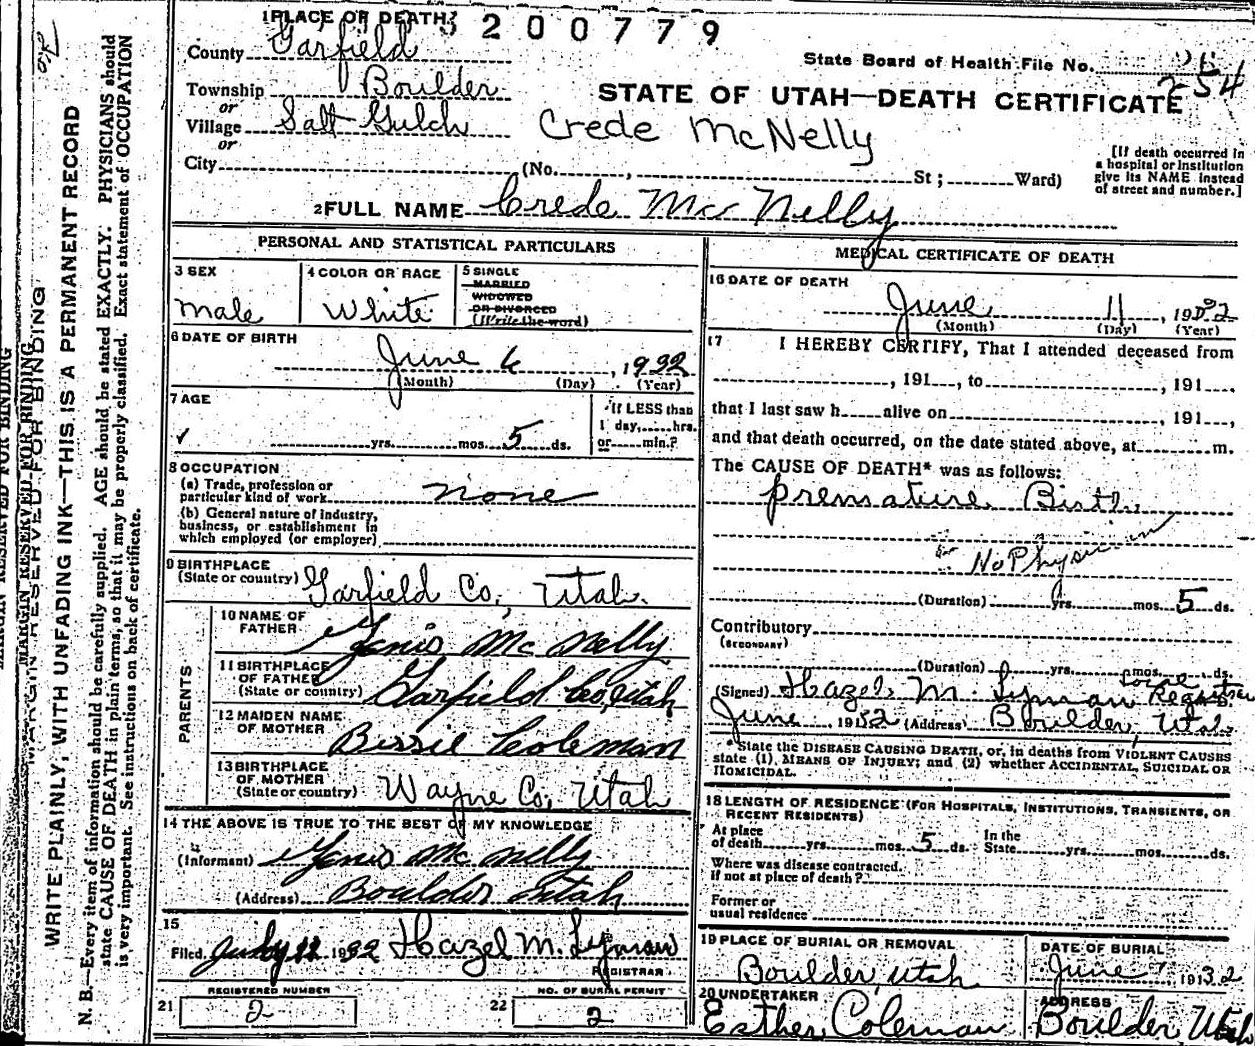 1 PLACE OF DEATH 200779
County Garfield
State Board of Health File No. 254
Township Boulder
or
STATE OF UTAH—DEATH CERTIFICATE
Village Salt Gulch
Crede McNelly
or
City (No. , St; Ward)
[If death occurred in
a hospital or institution
give its NAME instead
of street and number.]
2 FULL NAME Crede McNelly
PERSONAL AND STATISTICAL PARTICULARS
3 SEX
male
4 COLOR OR RACE
White
5 SINGLE
MARRIED
WIDOWED
OR DIVORCED
(Write the word)
6 DATE OF BIRTH
June 6, 1932
(Month) (Day) (Year)
7 AGE
yrs. mos. 5 ds.
If LESS than
1 day, hrs.
or min.?
8 OCCUPATION
(a) Trade, profession or
particular kind of work none
(b) General nature of industry,
business, or establishment in
which employed (or employer)
9 BIRTHPLACE
(State or country) Garfield Co, Utah.
PARENTS
10 NAME OF
FATHER McNelly
11 BIRTHPLACE
OF FATHER
(State or country) Garfield Co, Utah
12 MAIDEN NAME
OF MOTHER Bessie Coleman
13 BIRTHPLACE
OF MOTHER
(State or country) Wayne Co, Utah
14 THE ABOVE IS TRUE TO THE BEST OF MY KNOWLEDGE
(Informant) McNelly
(Address) Boulder Utah
15
Filed 1932 Hazel M. Lyman
REGISTRAR
REGISTERED NUMBER
21 2
NO. OF BURIAL PERMIT
22 2
MEDICAL CERTIFICATE OF DEATH
16 DATE OF DEATH
June 11, 1932
(Month) (Day) (Year)
17 I HEREBY CERTIFY, That I attended deceased from
, 191 , to , 191 ,
that I last saw h alive on , 191 ,
and that death occurred, on the date stated above, at m.
The CAUSE OF DEATH* was as follows:
premature Birth
No Physician
(Duration) yrs. mos. 5 ds.
Contributory
(SECONDARY)
(Duration) yrs. mos. ds.
(Signed) Hazel M. Lyman Local Registrar
June 1932 (Address) Boulder, Utah
* State the DISEASE CAUSING DEATH, or, in deaths from VIOLENT CAUSES
state (1) MEANS OF INJURY; and (2) whether ACCIDENTAL, SUICIDAL OR
HOMICIDAL.
18 LENGTH OF RESIDENCE (FOR HOSPITALS, INSTITUTIONS, TRANSIENTS, OR
RECENT RESIDENTS)
At place
of death yrs. mos. 5 ds.
In the
State yrs. mos. ds.
Where was disease contracted,
if not at place of death?
Former or
usual residence
19 PLACE OF BURIAL OR REMOVAL
Boulder, Utah
DATE OF BURIAL
June 1932
20 UNDERTAKER
Esther Coleman
ADDRESS
Boulder, Utah
MARGIN RESERVED FOR BINDING
WRITE PLAINLY, WITH UNFADING INK—THIS IS A PERMANENT RECORD
N. B.—Every item of information should be carefully supplied. AGE should be stated EXACTLY. PHYSICIANS should
state CAUSE OF DEATH in plain terms, so that it may be properly classified. Exact statement of OCCUPATION
is very important. See instructions on back of certificate.